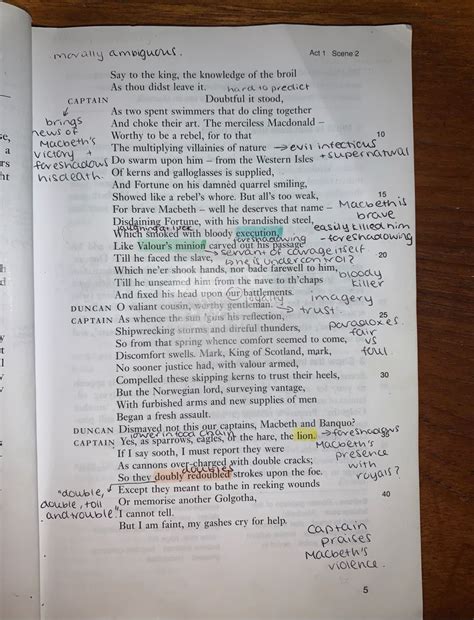 morally ambiguous.
Act 1 Scene 2
Say to the king, the knowledge of the broil
As thou didst leave it.
hard to predict
CAPTAIN Doubtful it stood,
As two spent swimmers that do cling together
And choke their art. The merciless Macdonald –
Worthy to be a rebel, for to that 10
The multiplying villainies of nature → evil infectious
+ supernatural
Do swarm upon him – from the Western Isles
Of kerns and galloglasses is supplied,
And Fortune on his damnèd quarrel smiling,
Showed like a rebel's whore. But all's too weak, 15
For brave Macbeth – well he deserves that name –
Disdaining Fortune, with his brandished steel,
Which smoked with bloody execution,
Like Valour's minion carved out his passage
Till he faced the slave, 20
Which ne'er shook hands, nor bade farewell to him,
Till he unseamed him from the nave to th'chaps
And fixed his head upon our battlements.
brings
news of
Macbeth's
victory +
foreshadows
his death.
Macbeth is
brave
easily killed him
- foreshadowing
foreshadowing
→ servant of courage itself
→ he is under control?
bloody
killer
loyalty
imagery
→ trust.
DUNCAN O valiant cousin, worthy gentleman.
CAPTAIN As whence the sun 'gins his reflection, 25
Shipwrecking storms and direful thunders,
So from that spring whence comfort seemed to come,
Discomfort swells. Mark, King of Scotland, mark,
No sooner justice had, with valour armed,
Compelled these skipping kerns to trust their heels, 30
But the Norwegian lord, surveying vantage,
With furbished arms and new supplies of men
Began a fresh assault.
paradoxes
fair
vs
foul.
DUNCAN Dismayed not this our captains, Macbeth and Banquo?
CAPTAIN Yes, as sparrows, eagles, or the hare, the lion. 35
If I say sooth, I must report they were
As cannons over-charged with double cracks;
doubles
So they doubly redoubled strokes upon the foe.
Except they meant to bathe in reeking wounds
Or memorise another Golgotha, 40
I cannot tell.
But I am faint, my gashes cry for help.
lower in food chain
→ foreshadows
Macbeth's
presence
with
royals?
"double,
double, toil
and trouble"
Captain
praises
Macbeth's
violence.
5